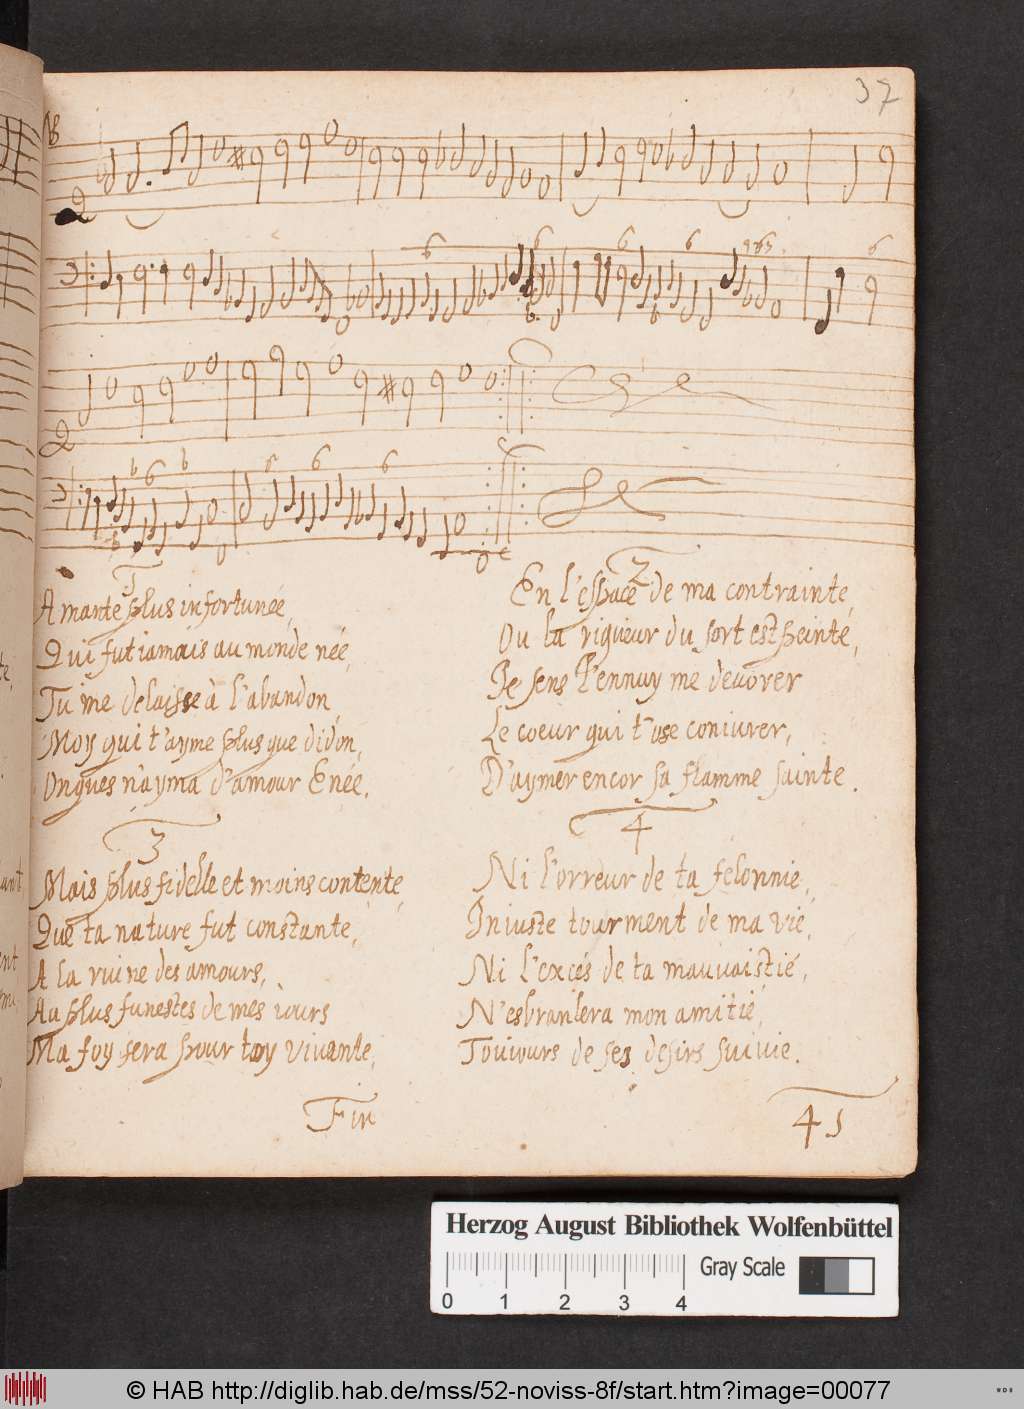 37
1
Amante plus infortunée,
Qui fut iamais au monde née,
Tu me delaisse à l'abandon,
Moy qui t'ayme plus que didon,
Onques n'ayma d'amour Enée.
2
En l'espace de ma contrainte,
Ou la rigueur du sort est peinte,
Je sens l'ennuy me devorer
Le coeur qui t'ose coniurer,
D'aymer encor sa flamme sainte.
3
Mais plus fidelle et moins contente,
Que ta nature fut constante,
A la ruine des amours,
Au plus funestes de mes iours
Ma foy sera pour toy vivante,
4
Ni l'orreur de ta felonnie,
Iniuste tourment de ma vie,
Ni l'excés de ta mauvaistié,
N'esbranlera mon amitié,
Touiours de ses desirs suivie.
Fin
41
Herzog August Bibliothek Wolfenbüttel
0 1 2 3 4
Gray Scale
© HAB http://diglib.hab.de/mss/52-noviss-8f/start.htm?image=00077